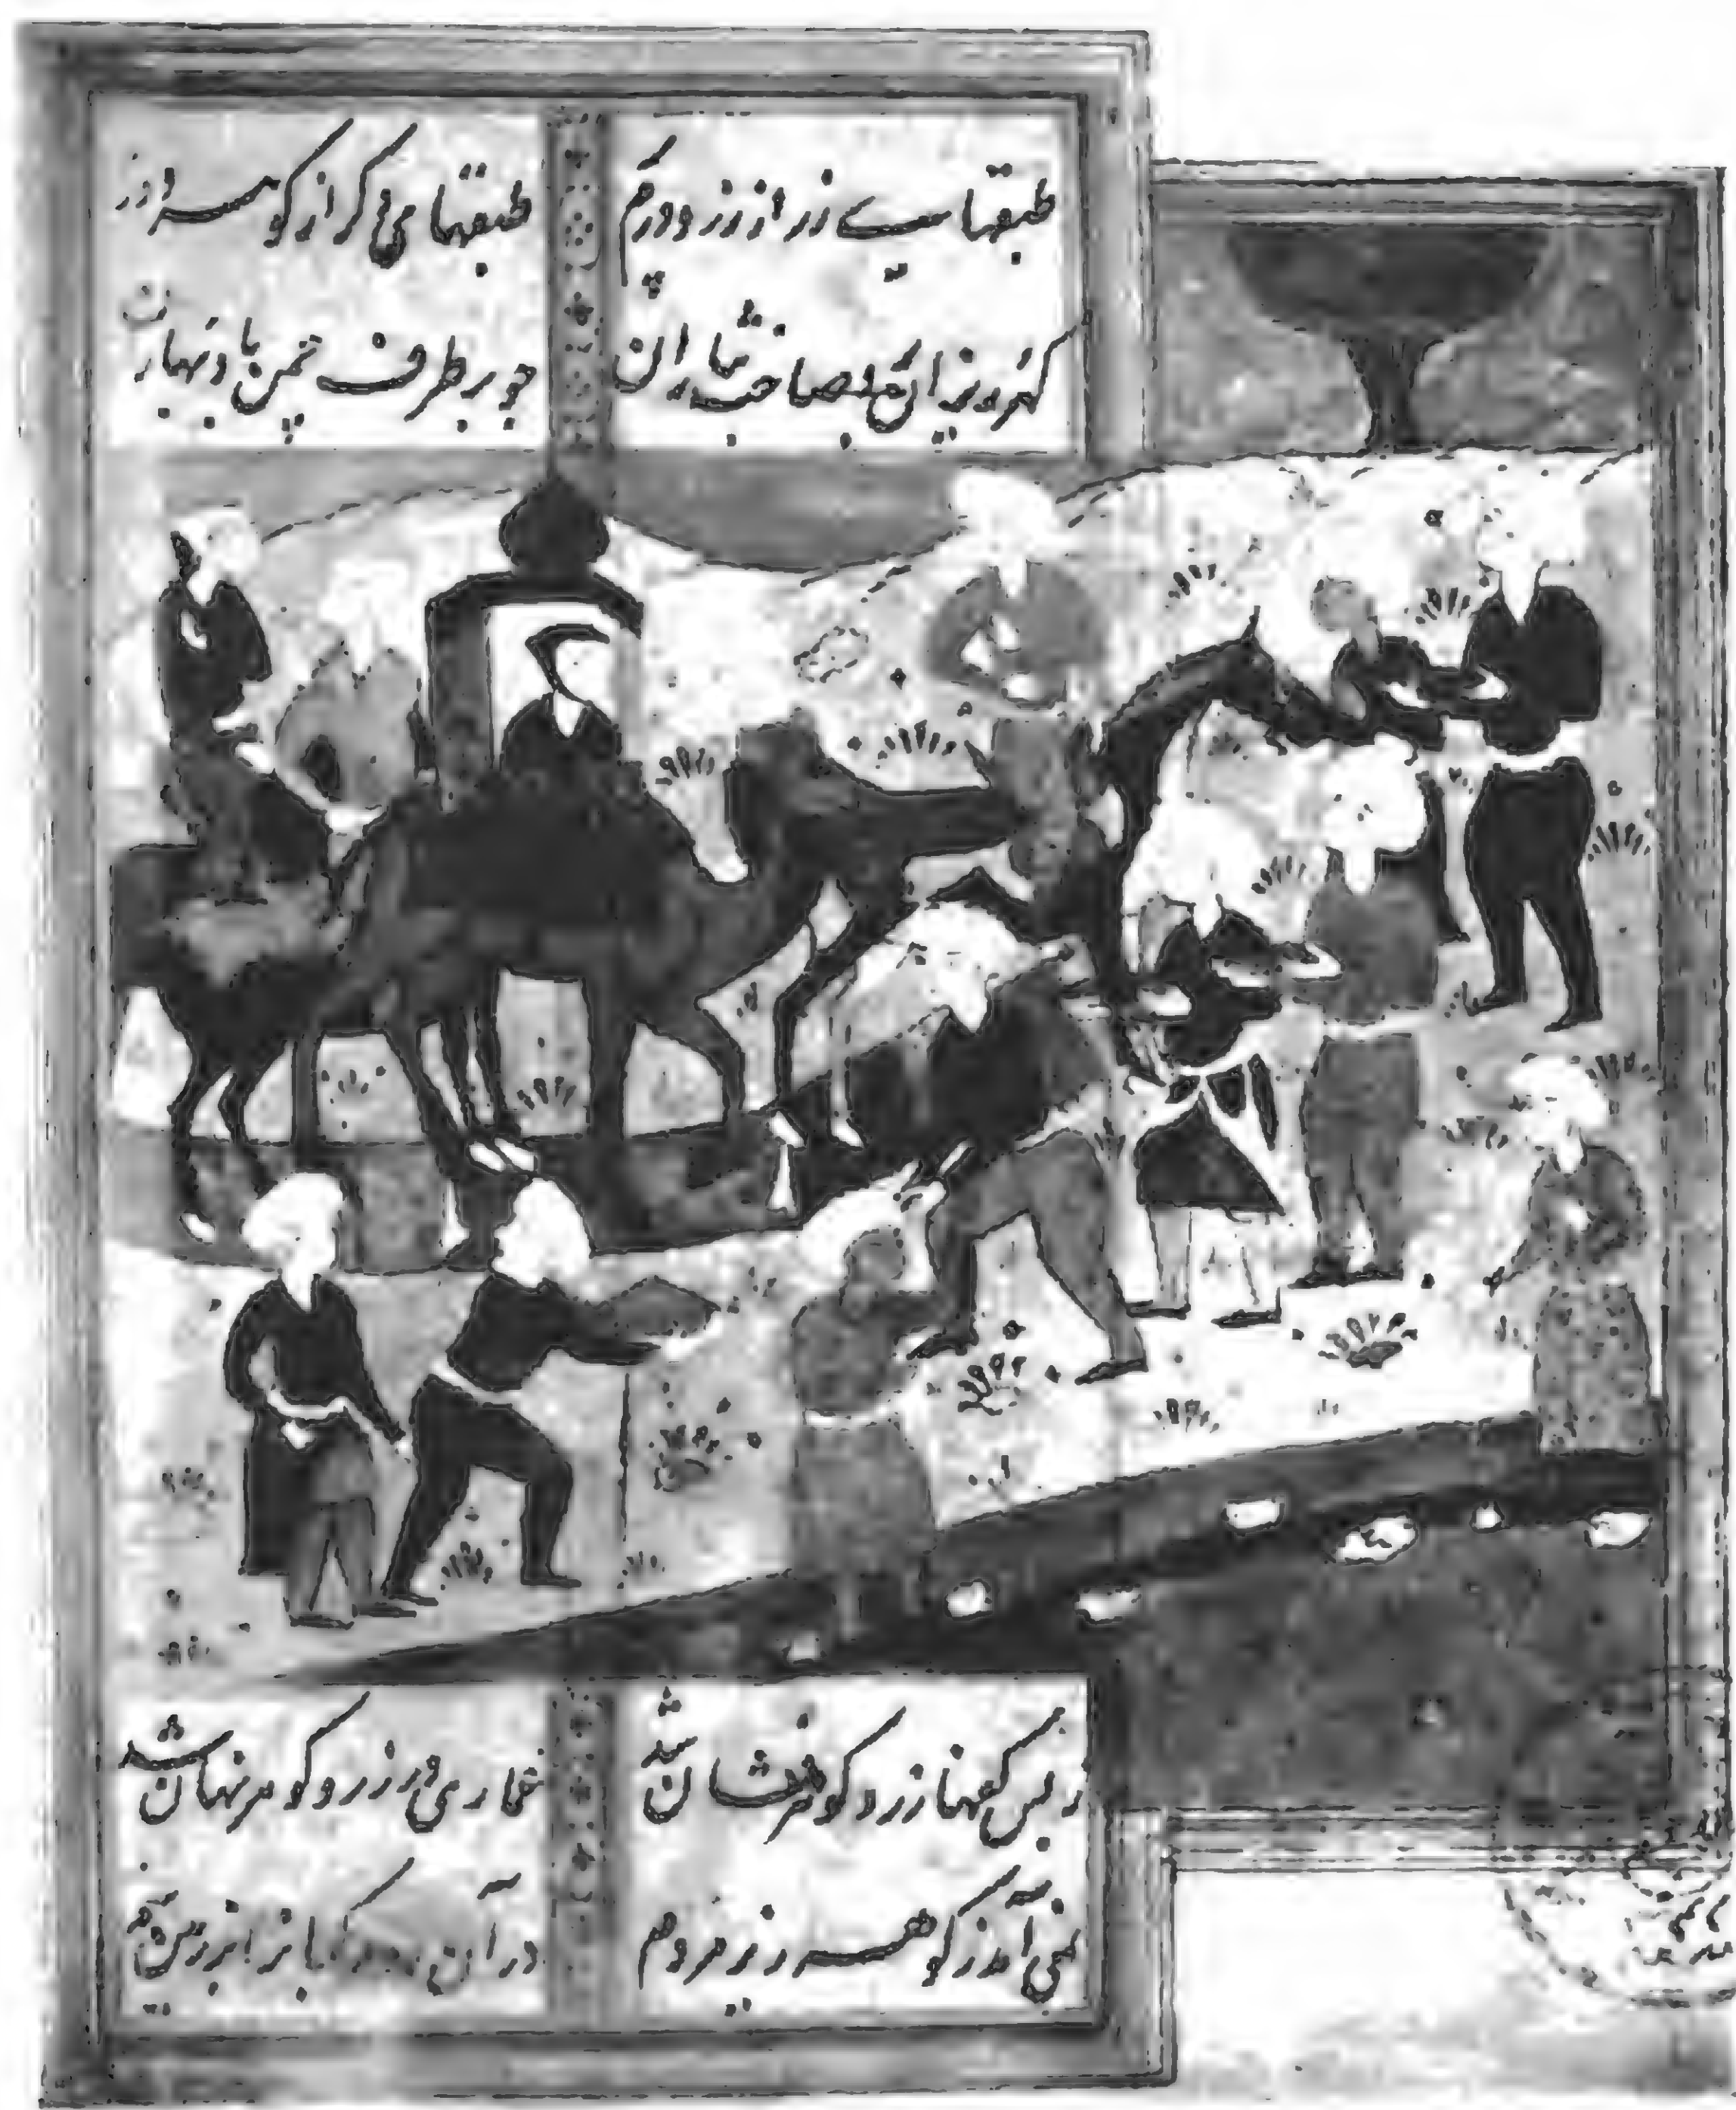 طبقهای زر از زر و درم پر طبقهای دگر از گوهر و در
گهر ریزان صاحب نثاران چو بر طرف چمن باد بهاران
ز بس کفها زر و گوهر فشان شد عماری در زر و گوهر نهان شد
نمی آمد ز گوهر ریز مردم در آن را بر زمین